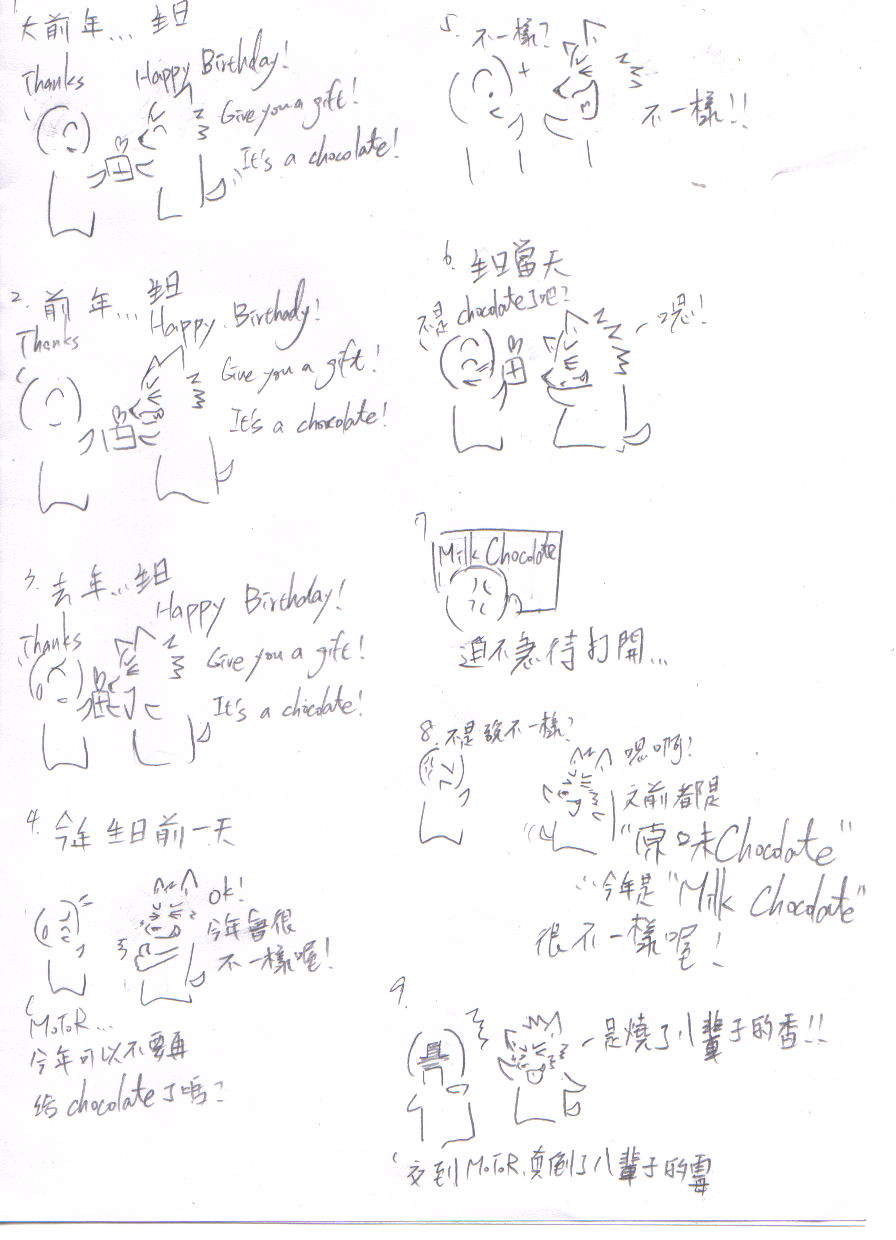 大前年...生日
Thanks
Happy Birthday!
Give you a gift!
It's a chocolate!
2. 前年...生日
Thanks
Happy Birthady!
Give you a gift!
It's a chocolate!
3. 去年...生日
Thanks
Happy Birthday!
Give you a gift!
It's a chocolate!
4. 今年生日前一天
OK!
今年會很
不一樣喔!
MoToR...
今年可以不要再
給chocolate了嗎?
5. 不一樣?
不一樣!!
6. 生日當天
不是chocolate了吧?
嗯!
7
Milk Chocolate
迫不急待打開...
8. 不是說不一樣?
嗯啊!
之前都是
"原味Chocolate"
今年是"Milk Chocolate"
很不一樣喔!
9.
是燒了八輩子的香!!
交到MoToR,真倒了八輩子的霉